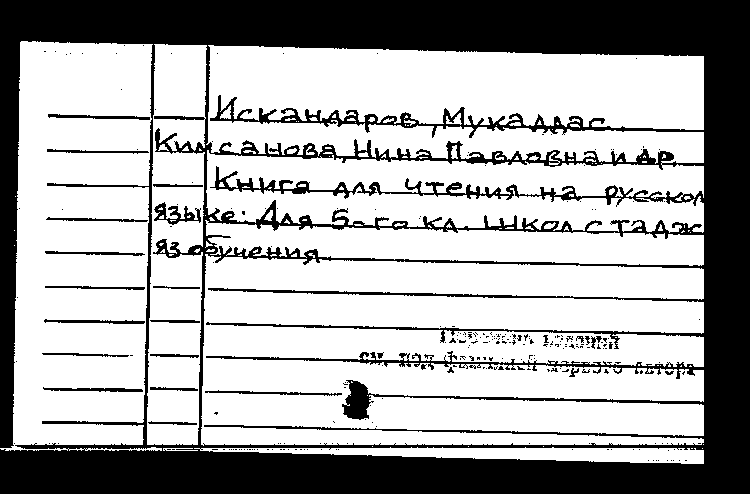 Искандаров, Мукаддас.
Кимсанова, Нина Павловна и др.
Книга для чтения на русском
языке: Для 5-го кл. школ с тадж
яз обучения.
Перечень изданий
см. под фамилией первого автора